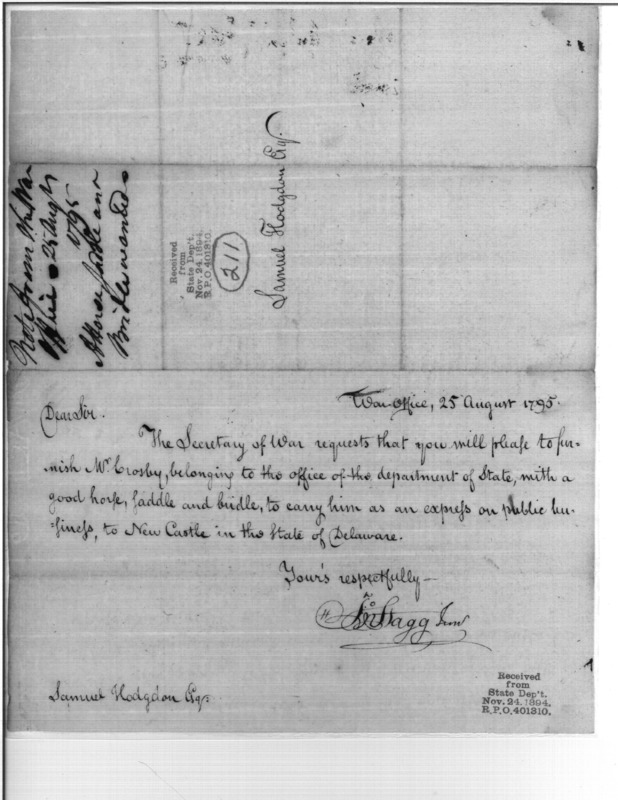 Note from the War
Office 25 Augt
1795
A Horse Saddle and
Bridle wanted
Received
from
State Dep't.
Nov. 24, 1894.
R.P.O. 401310.
211
Samuel Hodgdon Esqr.
War-Office, 25 August 1795.
Dear Sir.
The Secretary of War requests that you will please to fur-
-nish Mr. Crosby, belonging to the office of the department of State, with a
good horse, saddle and bridle, to carry him as an express on public bu-
-siness, to New Castle in the State of Delaware.
Your's respectfully—
Jno Stagg Junr
Samuel Hodgdon Esqr.
Received
from
State Dep't.
Nov. 24, 1894.
R.P.O. 401310.